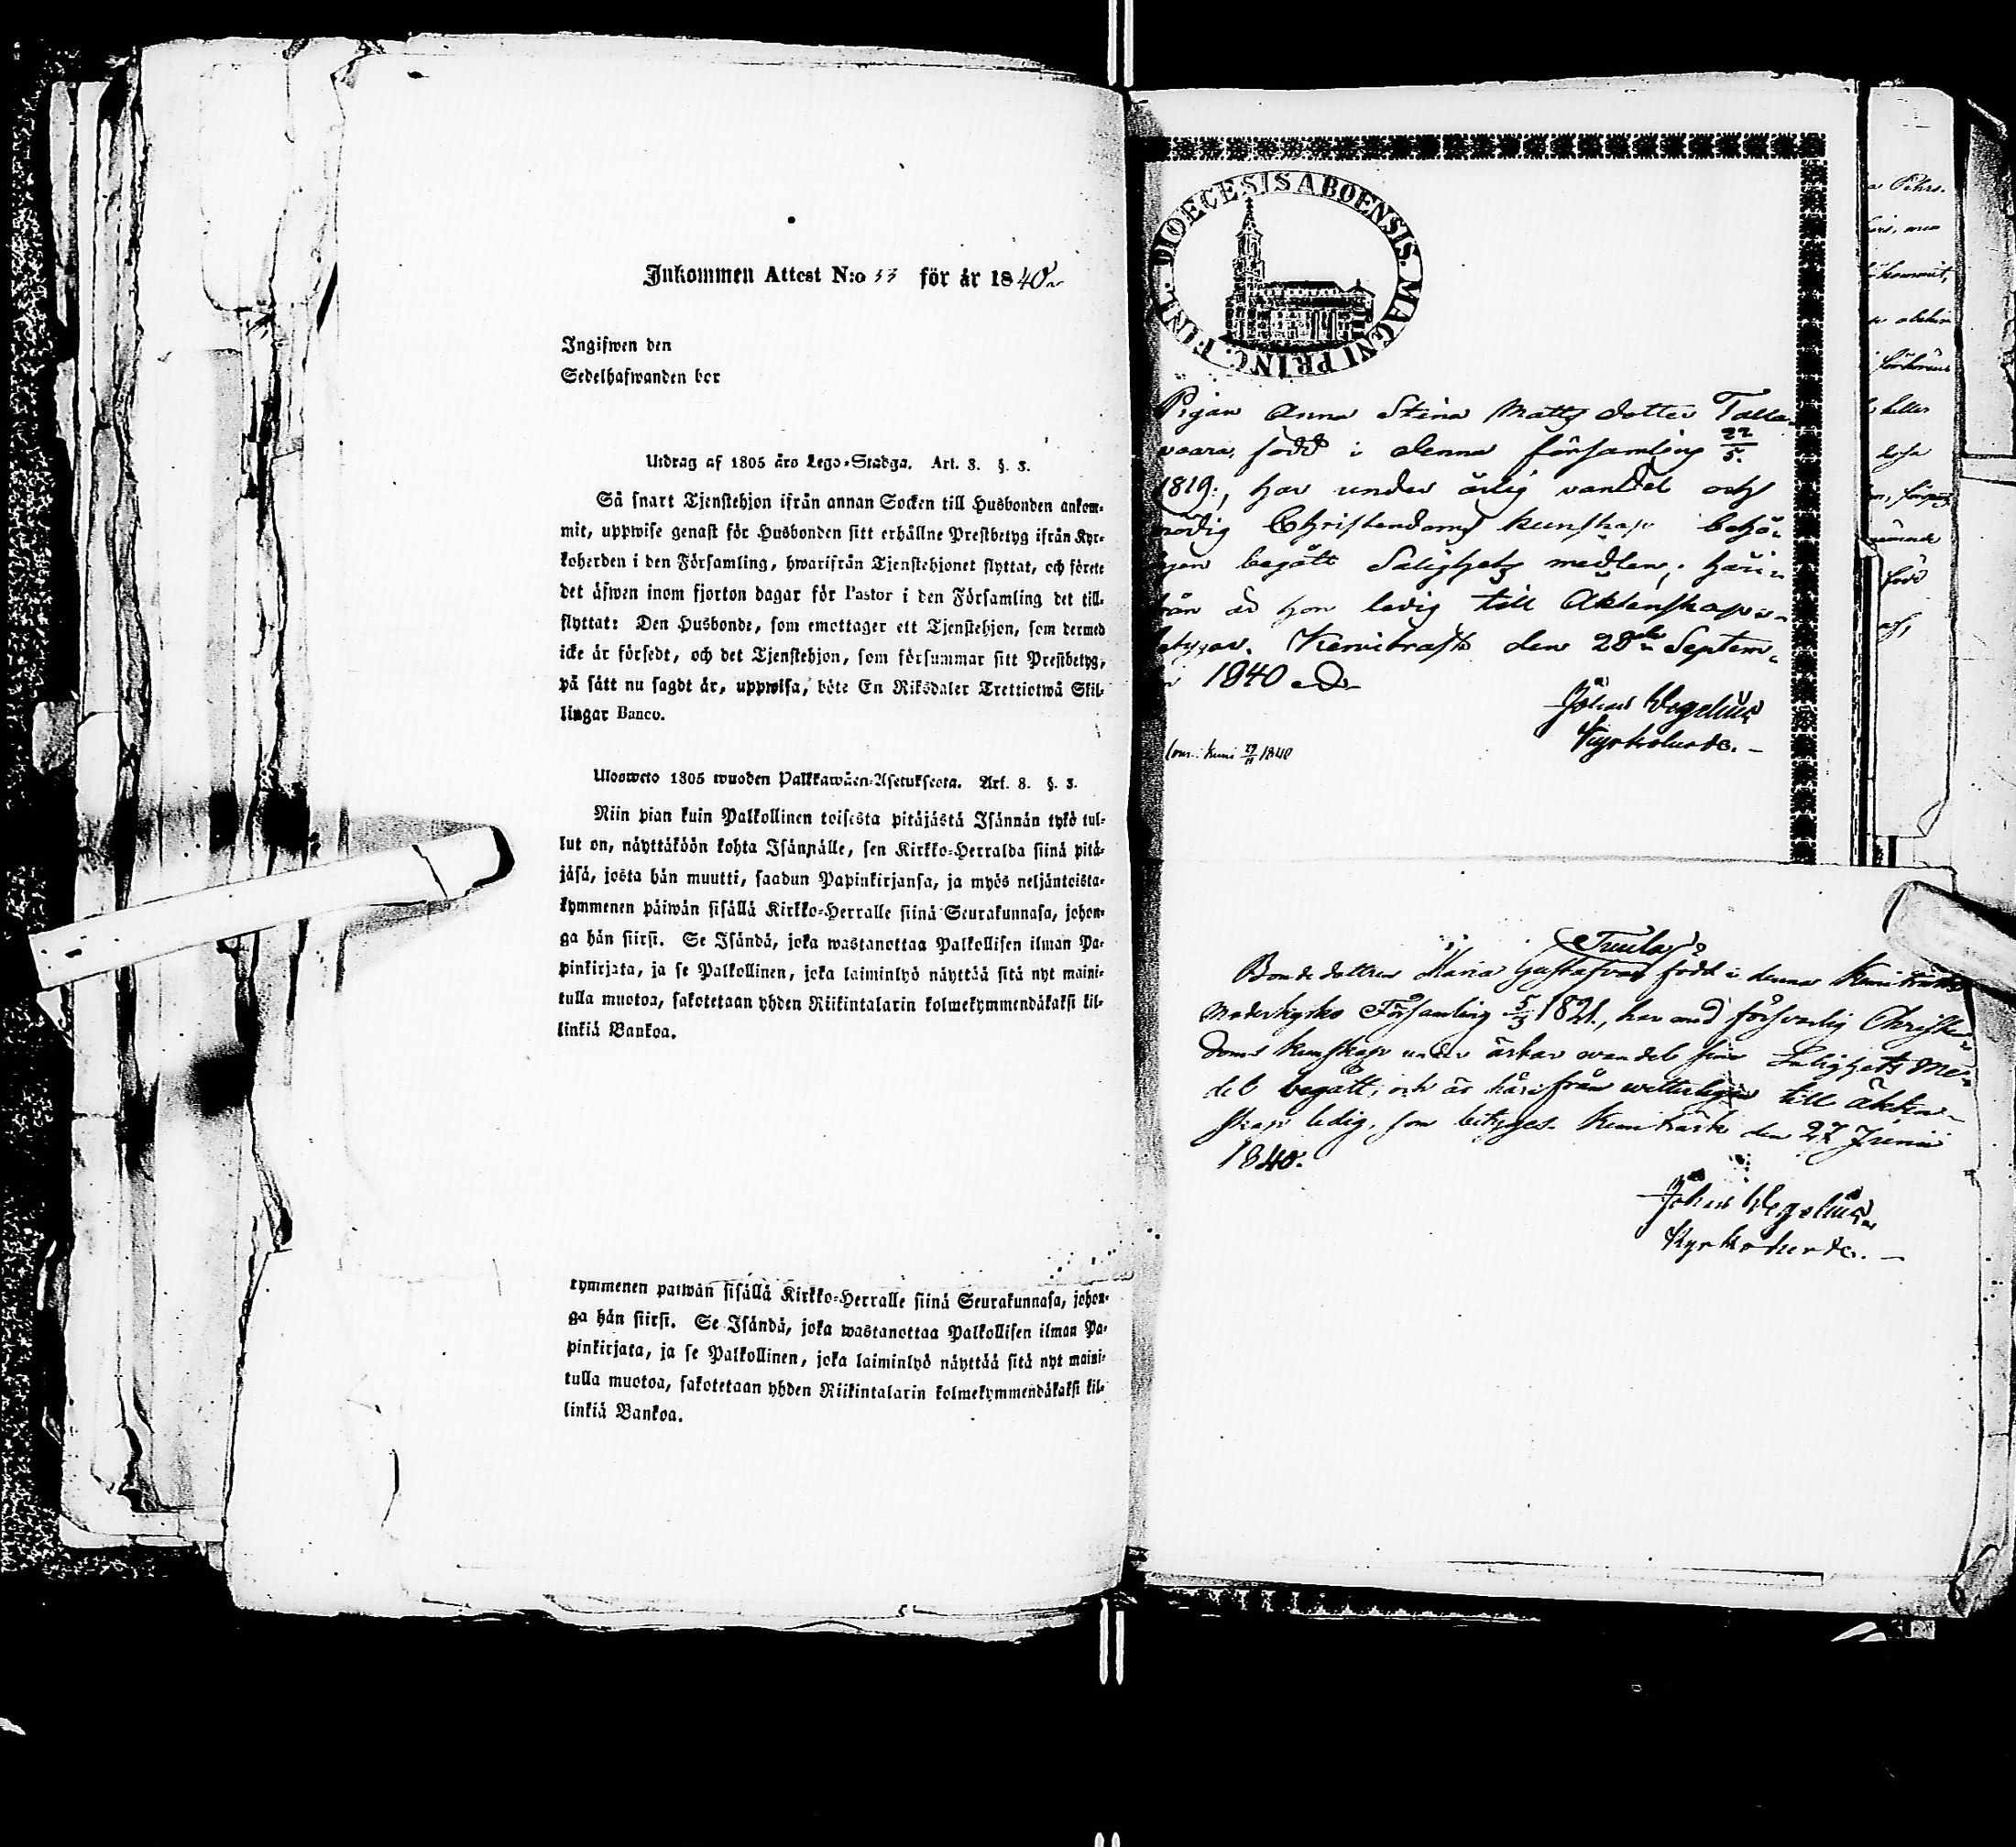 Inkommen Attest N:o 53 för år 1840
Ingifwen den
Sedelhafwanden bor
Utdrag af 1805 års Lego-Stadga. Art. 8. §. 3.
Så snart Tjenstehjon ifrån annan Socken till Husbonden ankom-
mit, uppwise genast för Husbonden sitt erhållne Prestbetyg ifrån Kyr-
koherden i den Församling, hwarifrån Tjenstehjonet flyttat, och förete
det äfwen inom fjorton dagar för Pastor i den Församling det till-
flyttat: Den Husbonde, som emottager ett Tjenstehjon, som dermed
icke är försedt, och det Tjenstehjon, som försummar sitt Prestbetyg,
på sätt nu sagdt är, uppwisa, böte En Riksdaler Trettiotwå Skil-
lingar Banco.
Ulosweto 1805 wuoden Palkkawäen-Asetuksesta. Art. 8. §. 3.
Niin pian kuin Palkollinen toisesta pitäjästä Isännän tykö tul-
lut on, näyttäköön kohta Isännälle, sen Kirkko-Herralda siinä pitä-
jäsä, josta hän muutti, saadun Papinkirjansa, ja myös neljäntoista-
kymmenen päiwän sisällä Kirkko-Herralle siinä Seurakunnasa, johon-
ga hän siirsi. Se Isändä, joka wastanottaa Palkollisen ilman Pa-
pinkirjata, ja se Palkollinen, joka laiminlyö näyttää sitä nyt maini-
tulla muotoa, sakotetaan yhden Riikintalarin kolmekymmendäkaksi kil-
linkiä Bankoa.
kymmenen päiwän sisällä Kirkko-Herralle siinä Seurakunnasa, johon-
ga hän siirsi. Se Isändä, joka wastanottaa Palkollisen ilman Pa-
pinkirjata, ja se Palkollinen, joka laiminlyö näyttää sitä nyt maini-
tulla muotoa, sakotetaan yhden Riikintalarin kolmekymmendäkaksi kil-
linkiä Bankoa.
DIOECESIS ABOENSIS. MAGNI PRINC. FINL.
Pigan Anna Stina Matts dotter Talla-
vaara, född i denna församling 22/5.
1819:, har under ärlig vandel och
nödig Christendoms kunskap behö-
gen begått Salighets medlen; häri-
från är hon ledig till Äktenskap
betygar. Kemiträsk den 28de Septem-
1840
Johan Wegelius
Kyrkoherde.
1840
Tuula
Bondedottren Maria Gustafva född i denna Kemiträsk
Moderkyrko Församling 5/3 1821., har med försvarlig Christen-
doms kunskap under ärbar vandel sina Salighets me-
del begått, och är härifrån witterligen till äkten-
skap ledig, som betyges. Kemiträsk den 27 Junii
1840.
Johan Wegelius
Kyrkoherde.